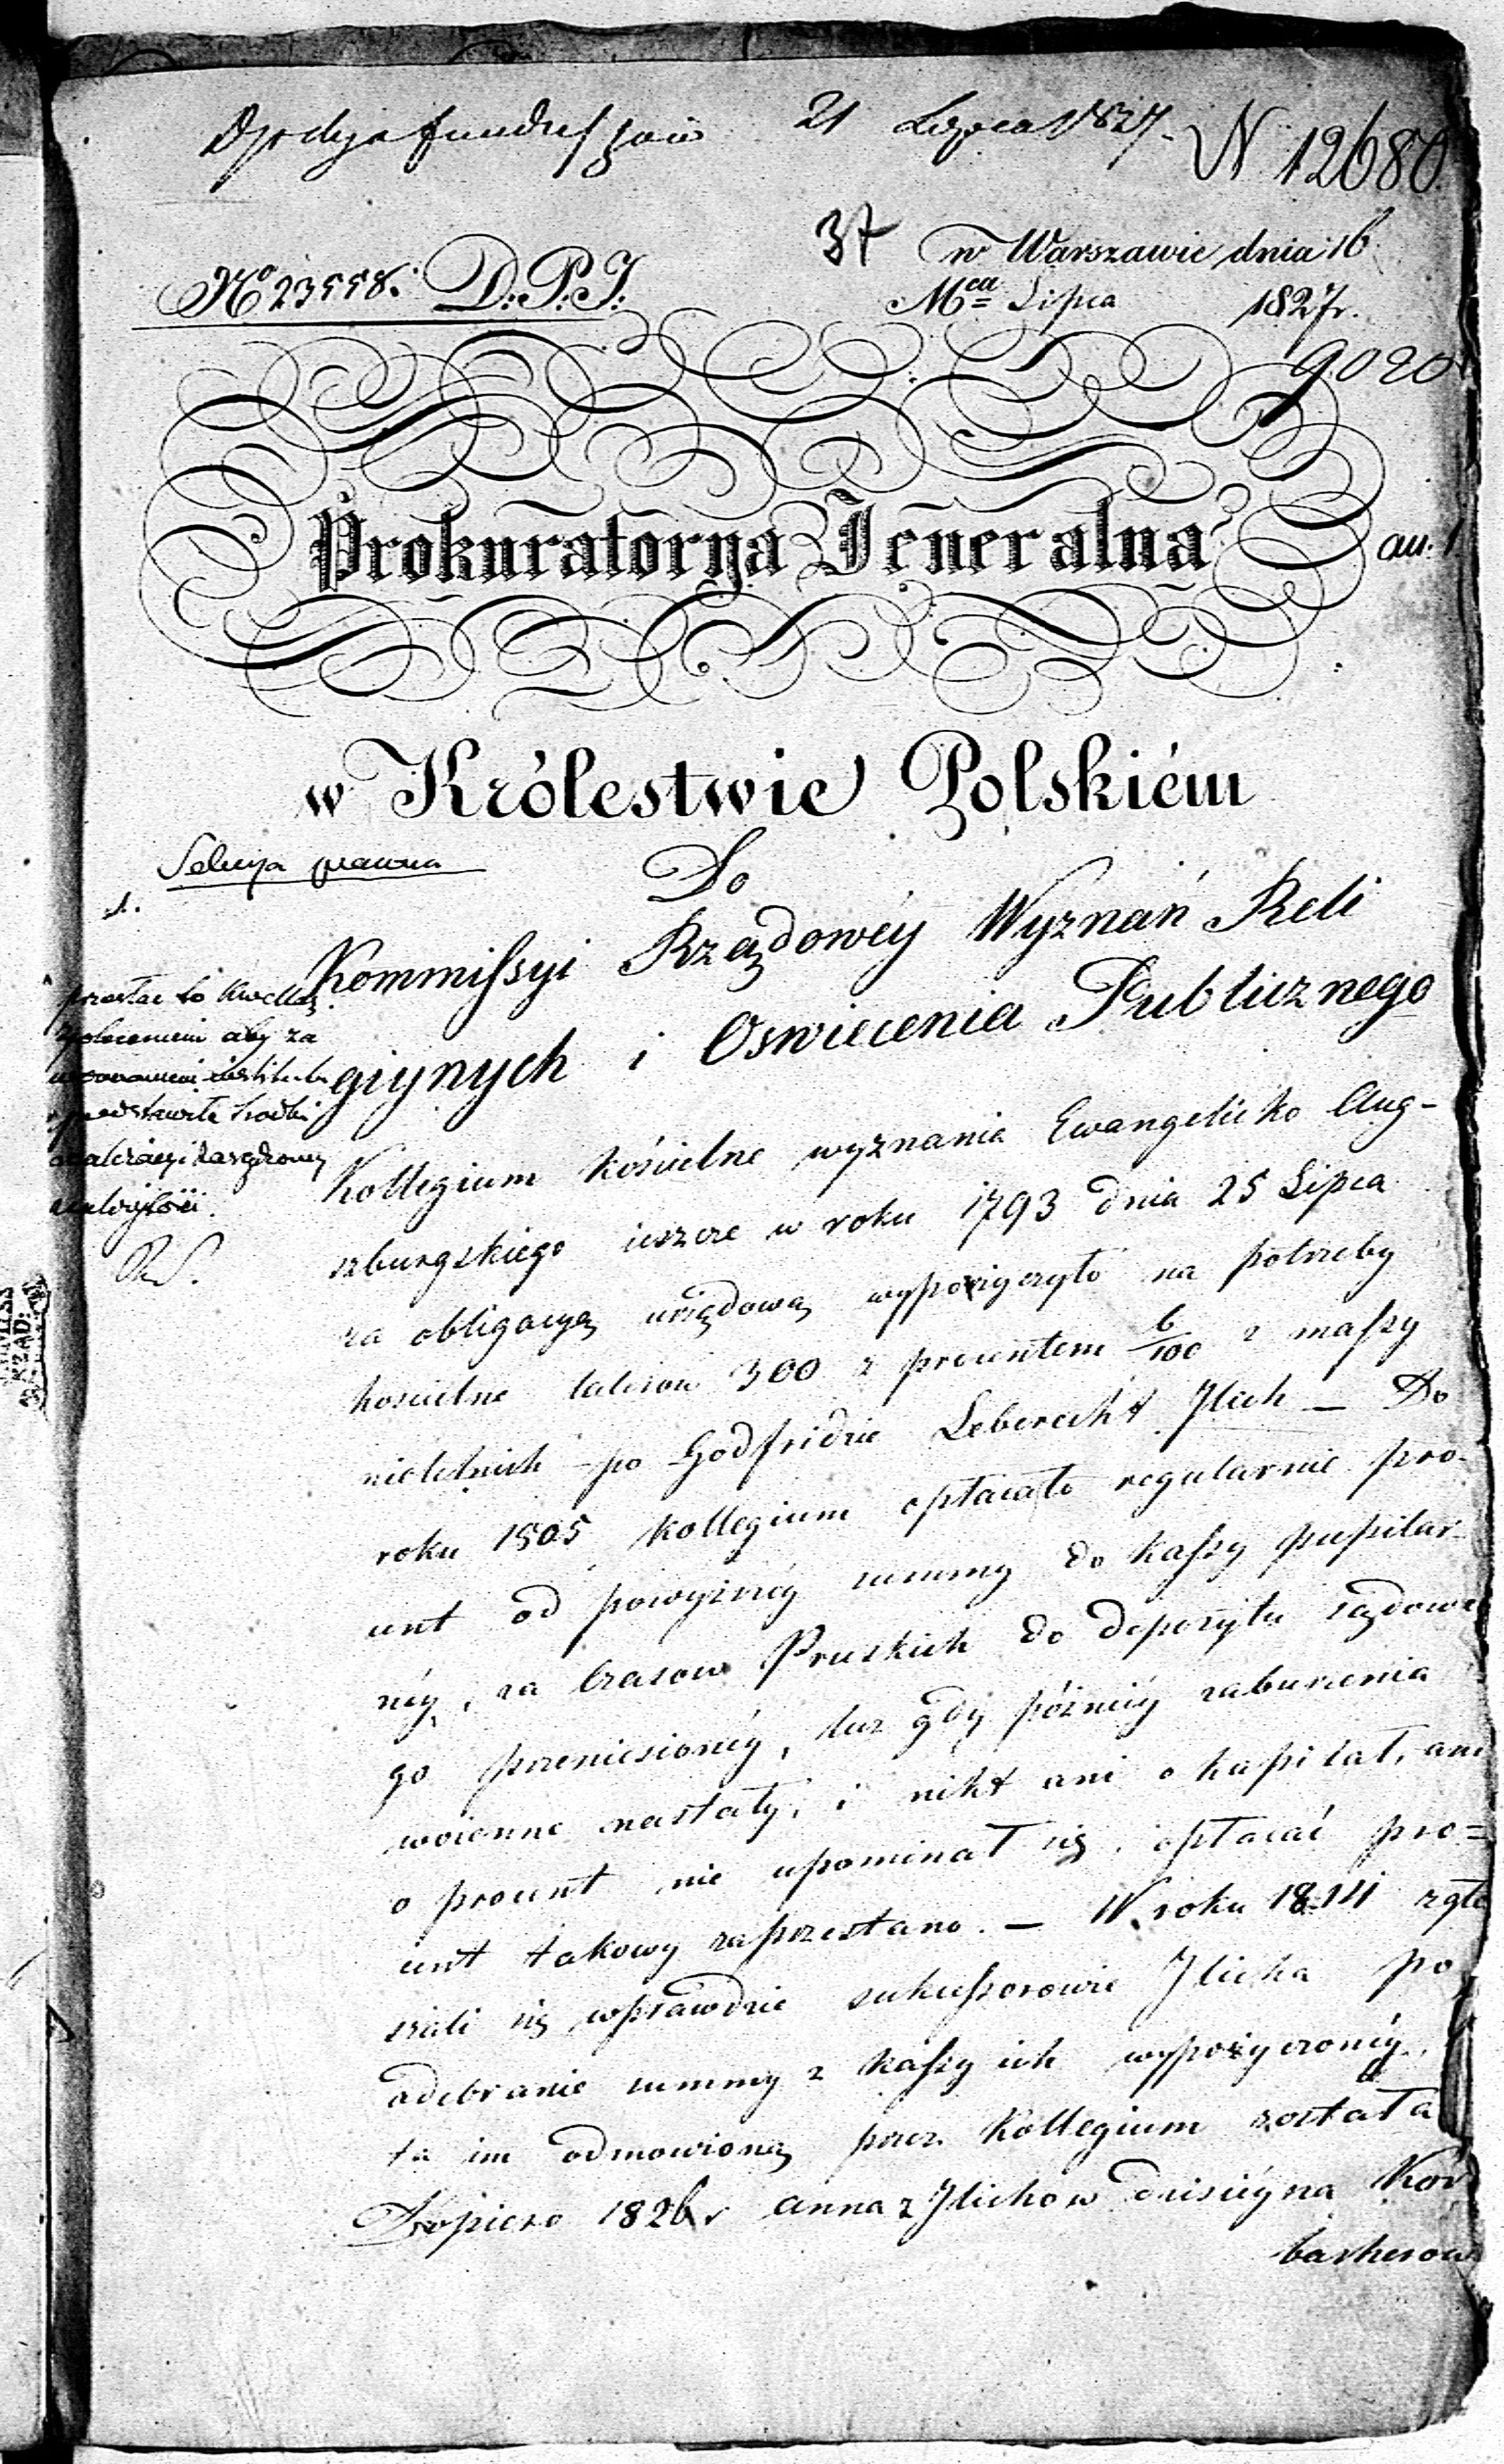 21 Lipca 1827.
N 12680
37 w Warszawie dnia 16
No 23558. D.P.J.
Mca Lipca 1827r.
9020
Prokuratorya Jeneralna
an. 1.
w Królestwie Polskiém
Sekcya prawna
Do
1.
Kommissyi Rządowéy Wyznań Reli
giynych i Oswiecenia Publicznego
Kollegium kościelne wyznania Ewangelicko Aug-
szburgskiego ieszcze w roku 1793 dnia 25 Lipca
za obligacyą urzędową wypożyczyło na potrzeby
koscielne talarow 300 z procentem 6/100 z massy
nieletnich po Godfridzie Leberecht Jlich — Do
roku 1805 Kollegium opłacało regularnie pro-
cent od powyższéy summy do kassy pupilar-
néy, za Czasow Pruskich do depozytu sądowe
go przeniesionéy, lecz gdy późniéy zaburzenia
woienne nastały, i nikt ani o kapitał, ani
o procent nie upominał się, opłacać pro=
cent takowy zaprzestano. — W roku 1814 zgło
sili się wprawdzie sukcessorowie Jlicha po
odebranie summy z kassy ich wypożyczonéy,
ta im odmowioną przez Kollegium została
Dopiero 1826r Anna z Jlichow dzisiéyna Kor
baskerow
przesłać to
poleceniem aby za